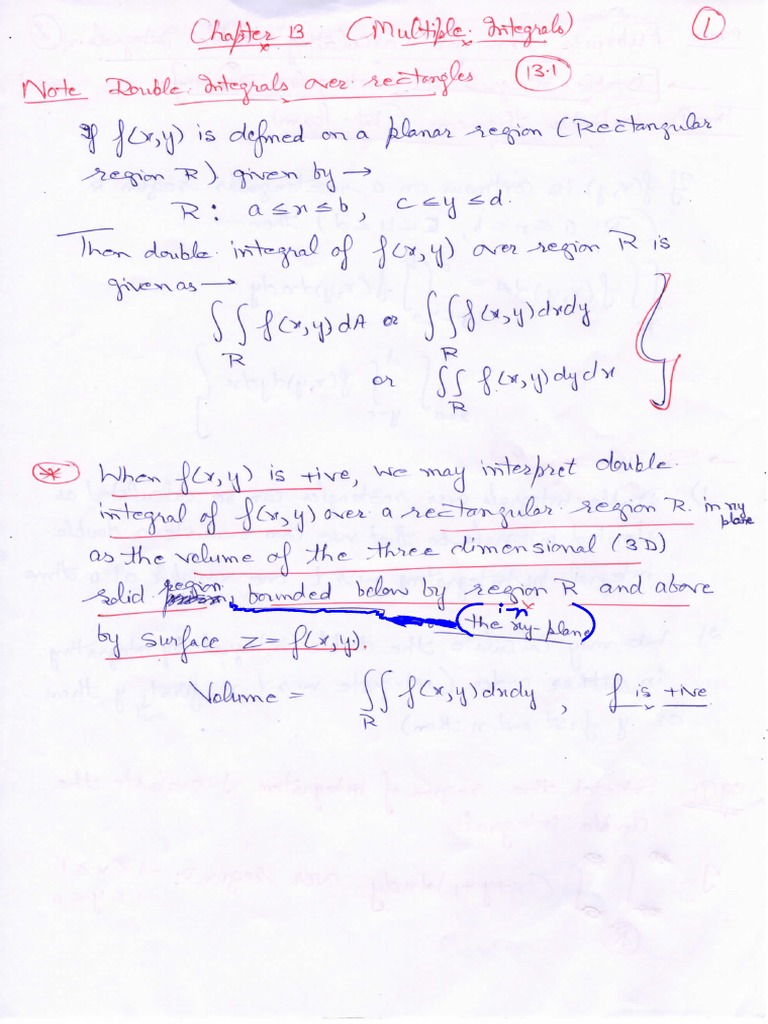 Chapter 13 (Multiple Integrals) 1
Note Double Integrals over rectangles 13.1
If f(x,y) is defined on a planar region (Rectangular
region R) given by →
R: a ≤ x ≤ b, c ≤ y ≤ d.
Then double integral of f(x,y) over region R is
given as →
∫∫ f(x,y) dA or ∫∫ f(x,y) dx dy
R R
or ∫∫ f(x,y) dy dx
R
* When f(x,y) is +ive, we may interpret double
integral of f(x,y) over a rectangular region R in xy plane
as the volume of the three dimensional (3D)
solid region, bounded below by region R and above
(in the xy-plane)
by surface z = f(x,y).
Volume = ∫∫ f(x,y) dx dy, f is +ive
R